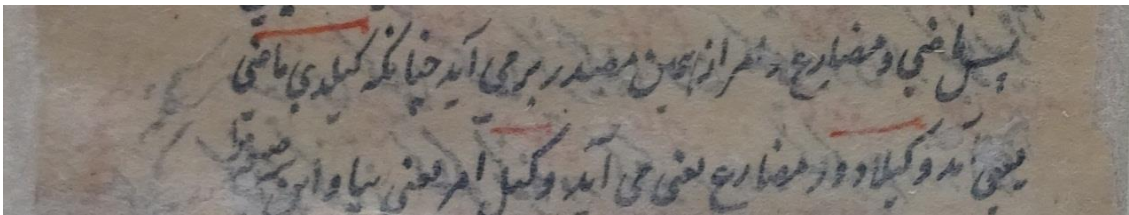 پس ماضی و مضارع و امر از همین مصدر بر می آید چنانکه کیلدی ماضی
یعنی آمد و کیلادور مضارع یعنی می آید و کیل امر یعنی بیا و این